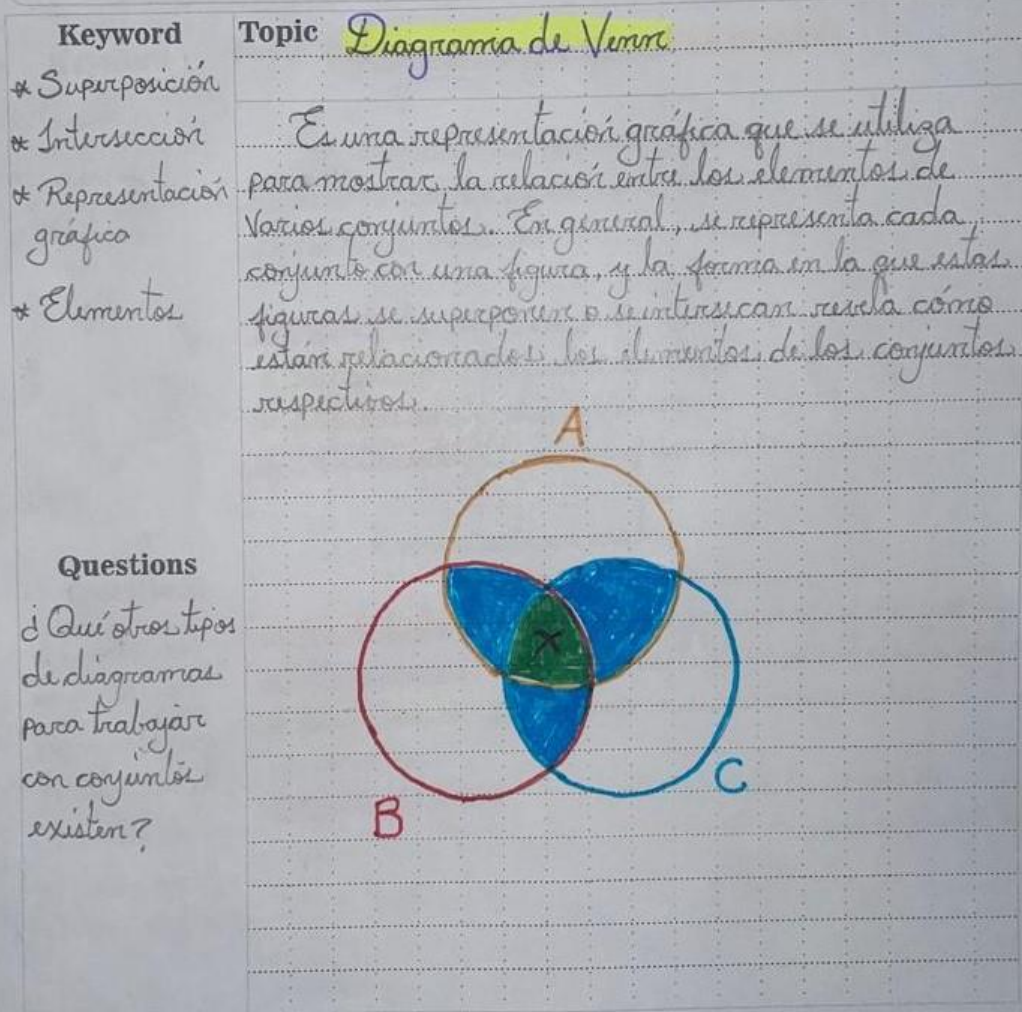 Keyword
* Superposición
* Intersección
* Representación
gráfica
* Elementos
Questions
¿Qué otros tipos
de diagramas
para trabajar
con conjuntos
existen?
Topic Diagrama de Venn
Es una representación gráfica que se utiliza
para mostrar la relación entre los elementos de
Varios conjuntos. En general, se representa cada
conjunto con una figura, y la forma en la que estas
figuras se superponen o se intersecan revela cómo
están relacionados los elementos de los conjuntos
respectivos.
A
X
B
C